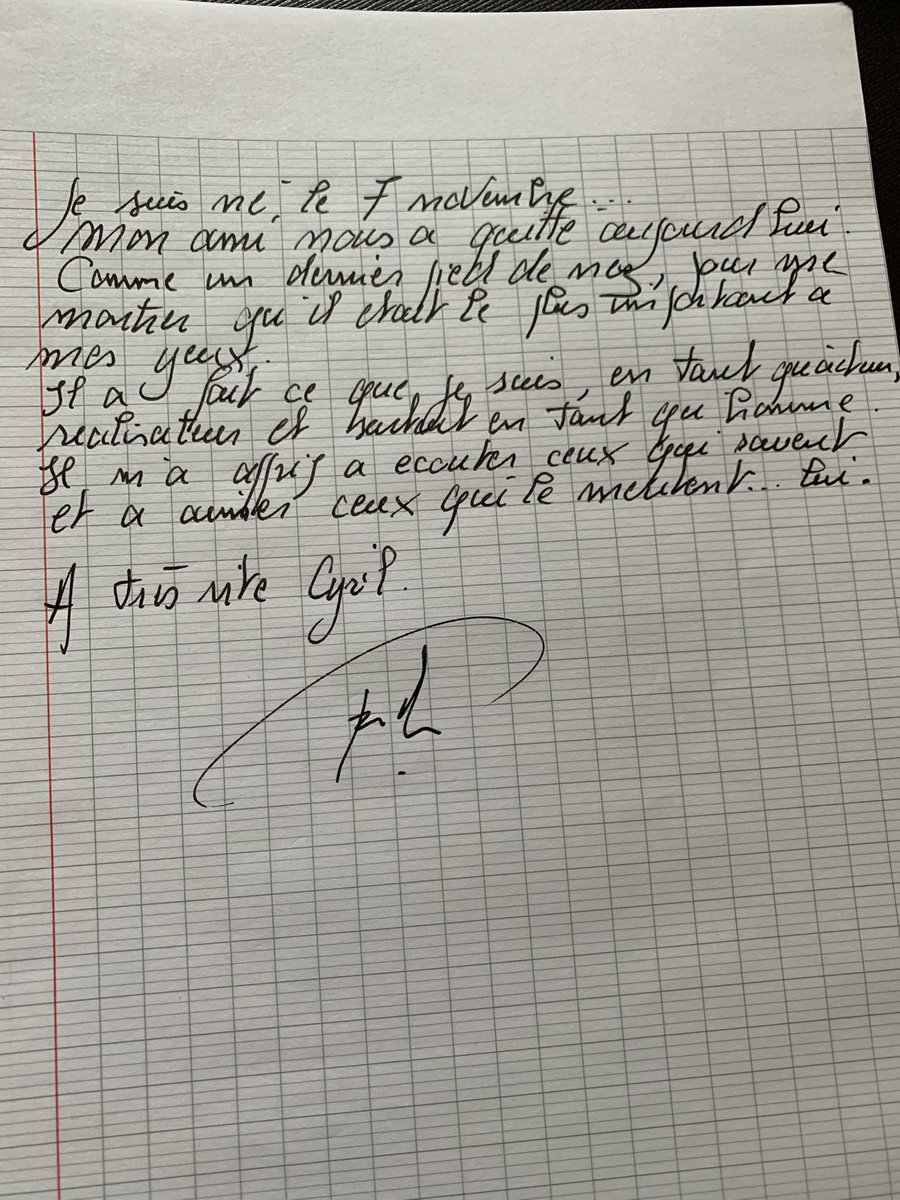 Je suis né, le 7 novembre...
Mon ami nous a quitté aujourd'hui.
Comme un dernier pied de nez, pour me
montrer qu'il etait le plus important a
mes yeux.
Il a fait ce que, je suis, en tant qu'acteur,
realisateur et surtout en tant qu'homme.
Il m'a appris a ecouter ceux qui savent
et a aimer ceux qui le meritent... Lui.
A très vite Cyril.